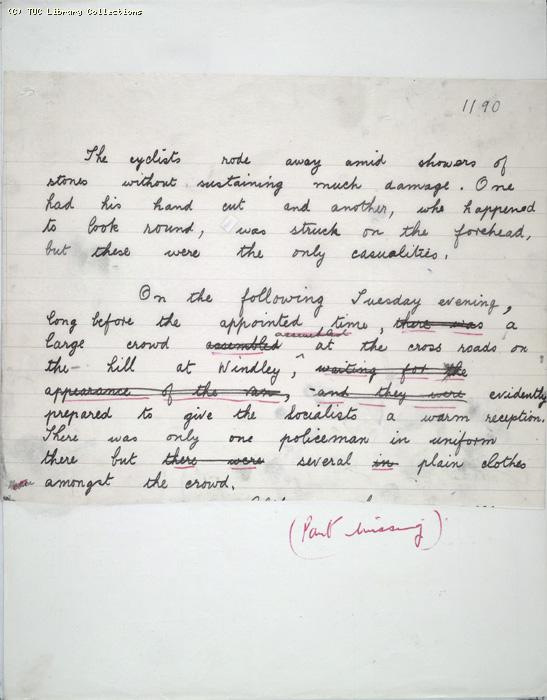 (C) TUC Library Collections
1190
The cyclists rode away amid showers of
stones without sustaining much damage. One
had his hand cut and another, who happened
to look round, was struck on the forehead,
but these were the only casualties.
On the following Tuesday evening,
long before the appointed time, there was a
large crowd assembled at the cross roads on
the hill at Windley, waiting for the
appearance of the van, and they were evidently
prepared to give the Socialists a warm reception.
There was only one policeman in uniform
there but there were several in plain clothes
amongst the crowd.
(Part missing)